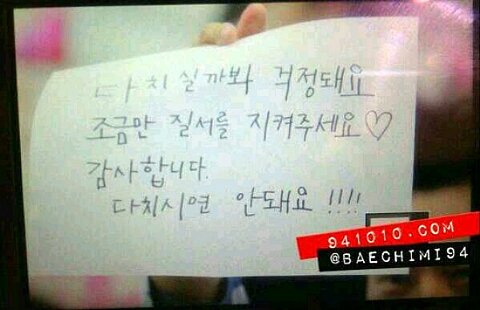 다치실까봐 걱정돼요
조금만 질서를 지켜주세요♡
감사합니다.
다치시면 안돼요 !!!!
941010.COM
@BAECHIMI94